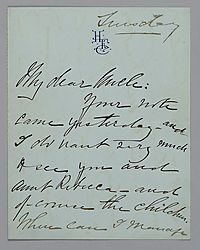 Tuesday
My dear Uncle:
Your note
came yesterday - and
I do want very much
to see you and
Aunt Rebecca - and
of course the children.
When can I manage